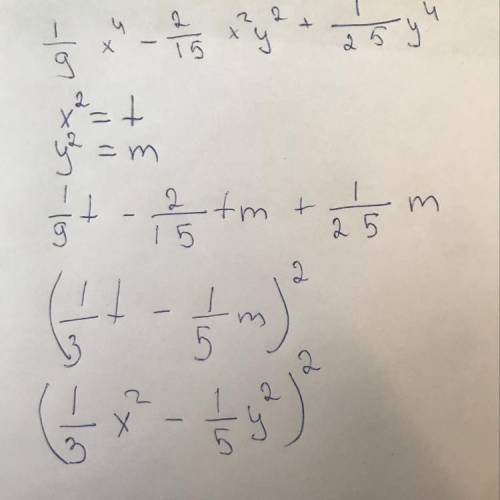 1/9 x⁴ - 2/15 x²y² + 1/25 y⁴
x² = t
y² = m
1/9 t - 2/15 tm + 1/25 m
(1/3 t - 1/5 m)²
(1/3 x² - 1/5 y²)²